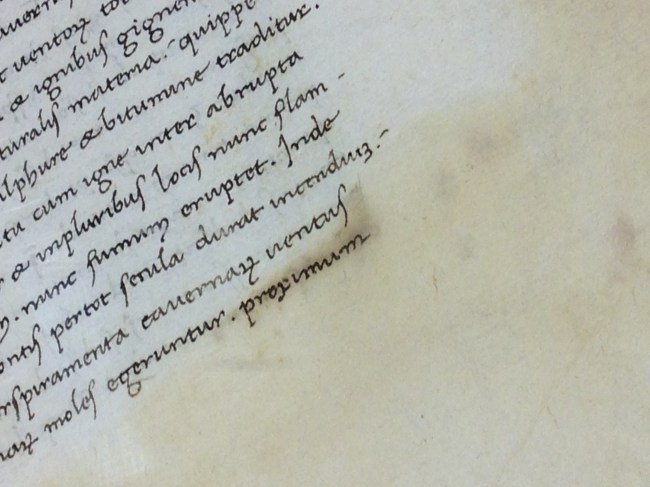 uentoꝝ tot
& ignibus gignen
turalis materia. quippe
ulphure & bitumine traditur.
tu cum igne inter abrupta
& inpluribus locis nunc flam-
nunc fumum eruptet. Inde
ontis pertot secula durat incendiuꝫ.
rspiramenta cauernaꝝ uentus
naꝝ moles egeruntur. proximum